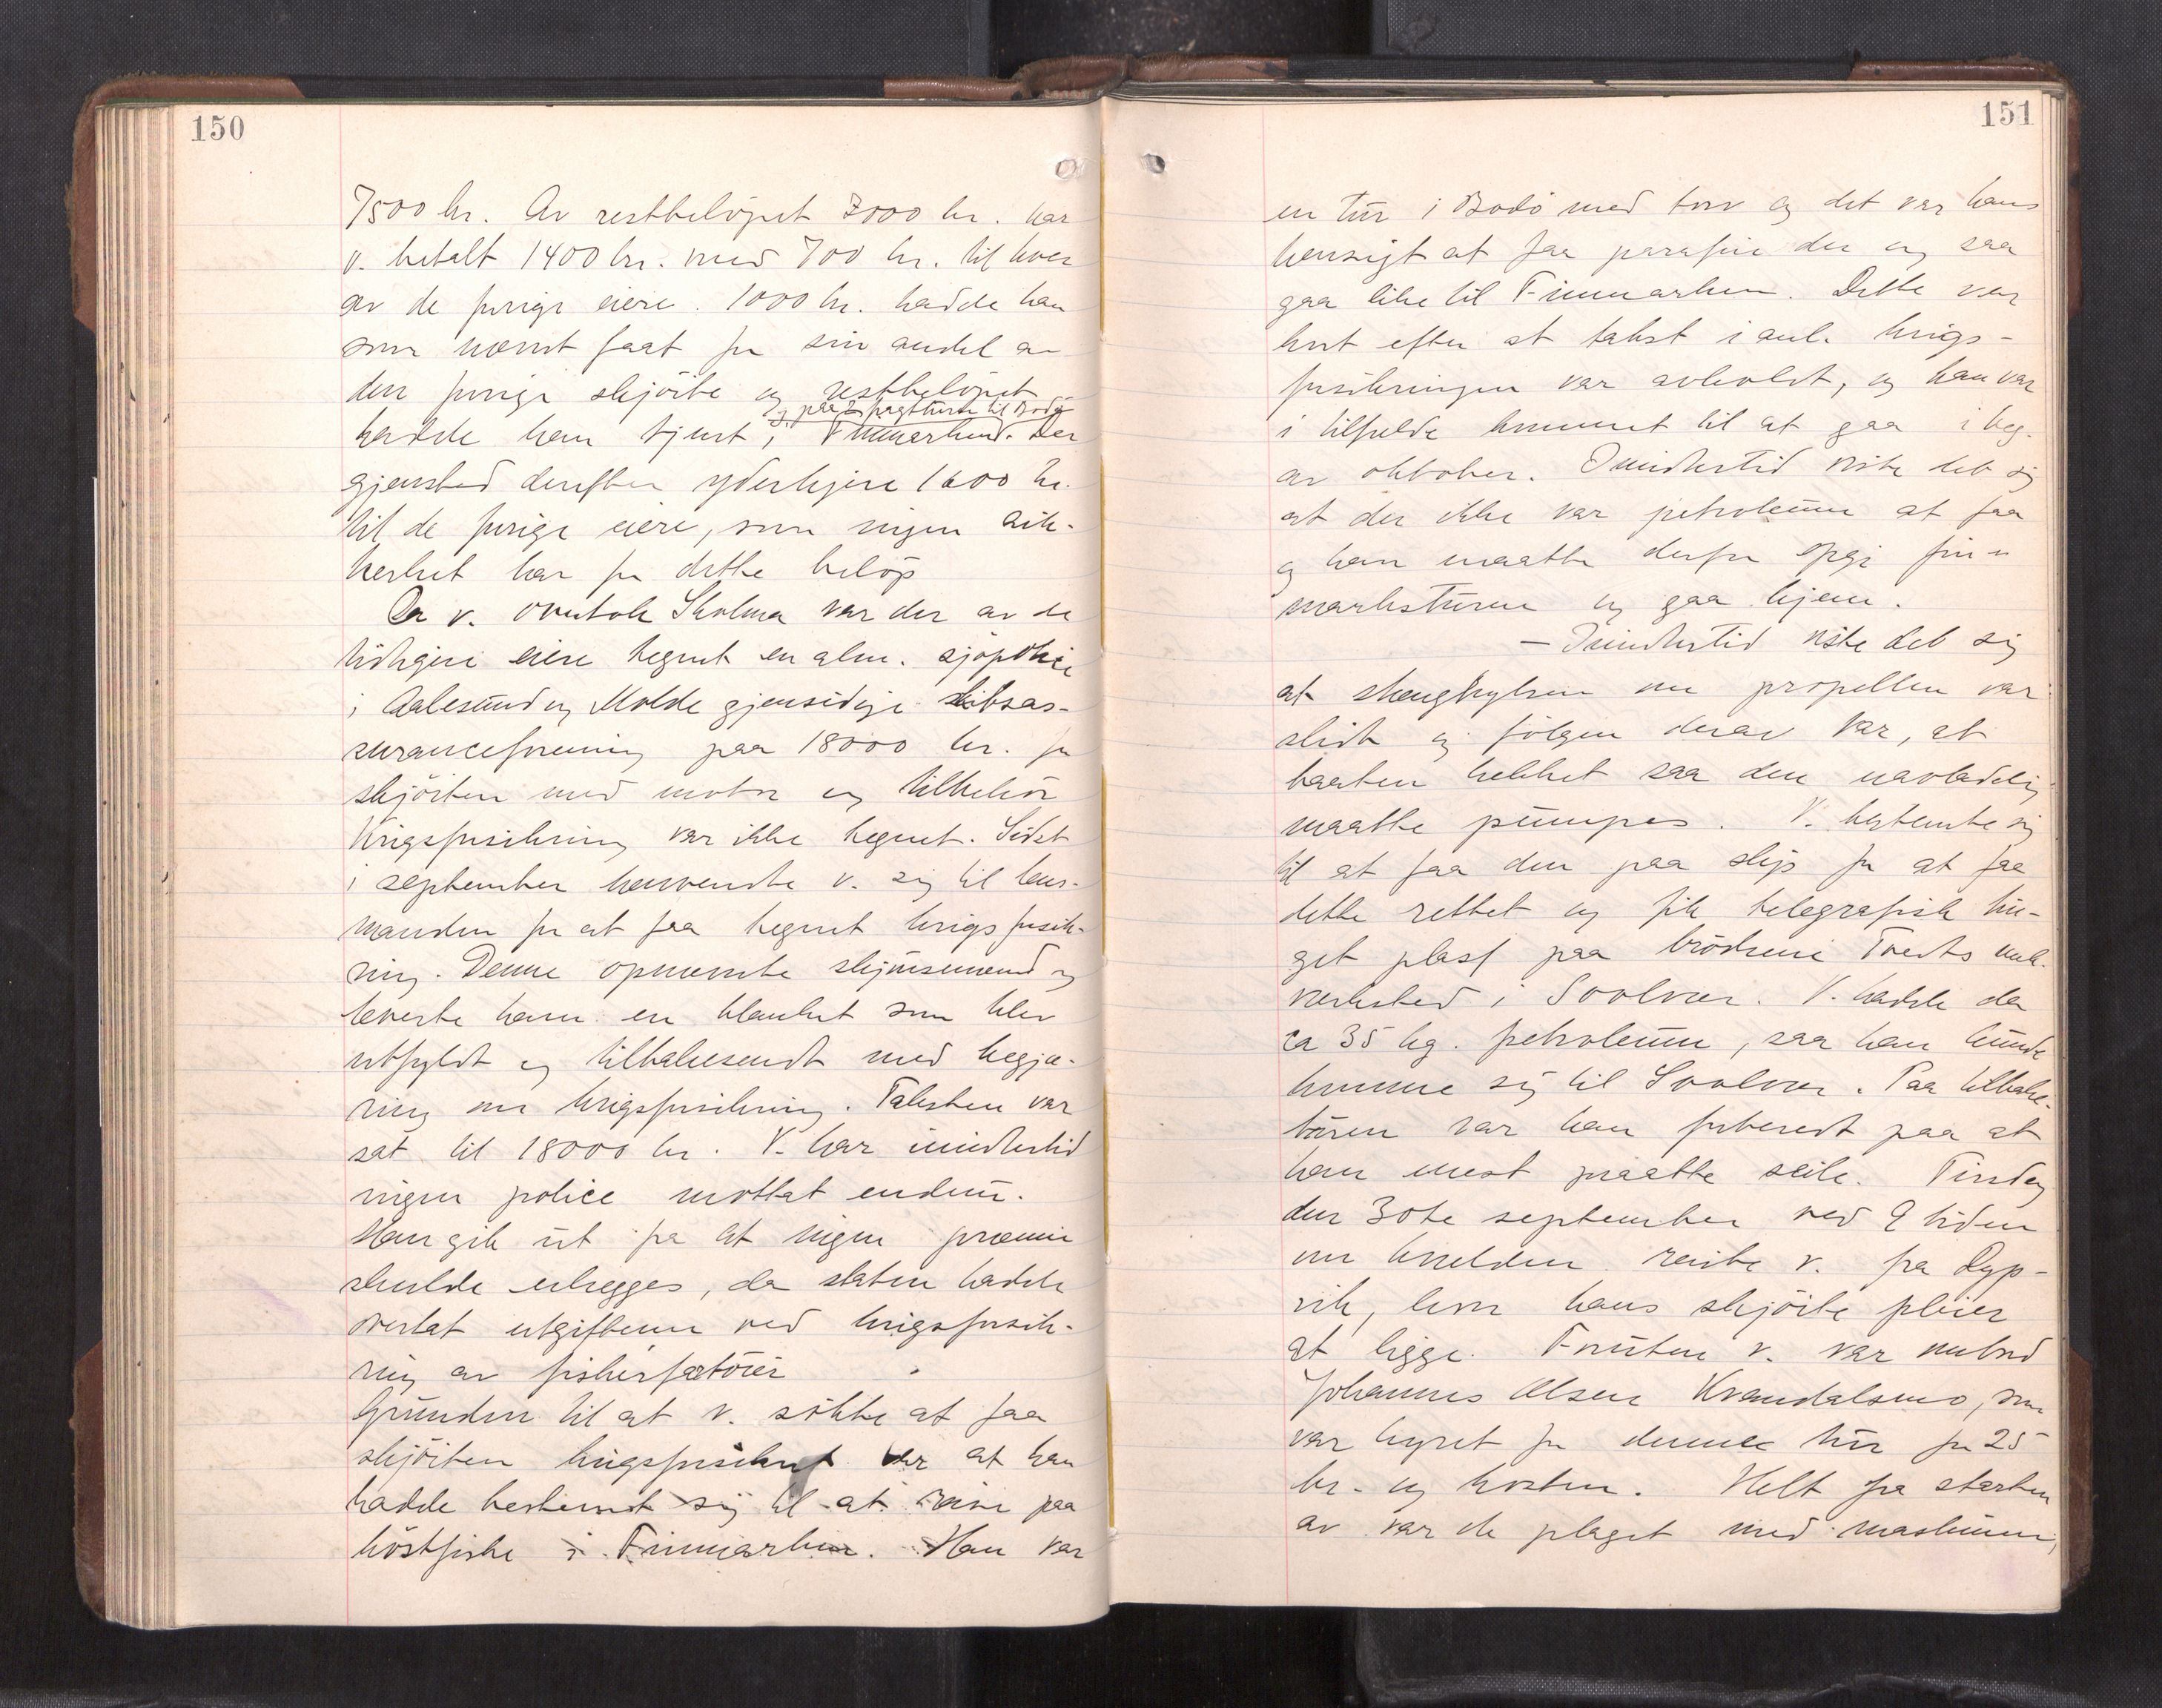 150
7500 kr. Av restbelöpet 3000 kr. har
v. betalt 1400 kr. med 700 kr. til hver
av de forrige eiere. 1000 kr. hadde han
som nævnt faat for sin andel av
den forrige skjöite og restbelöpet
og paa 2 fragtturer til Bodö
hadde han tjent i Finmarken. Der
gjenstod derefter yderligere 1600 kr.
til de forrige eiere, som ingen sik-
kerhet har for dette belöp
Da v. overtok Skolma var der av de
tidligere eiere tegnet en alm. sjöpolice
i Aalesund og Molde gjensidige skibsas-
suranceforening paa 18000 kr. for
skjöiten med motor og tilbehör
Krigsforsikring var ikke tegnet. Sidst
i september henvendte v. sig til lens-
manden for at faa tegnet krigsforsik-
ring. Denne opnævnte skjönsmænd og
leverte ham en blanket som blev
utfyldt og tilbakesendt med begjæ-
ring om krigsforsikring. Taksten var
sat til 18000 kr. V. har imidlertid
ingen police mottat endnu.
Han gik ut fra at ingen præmie
skulde erlægges, da staten hadde
overtat utgifterne ved krigsforsik-
ring av fiskerfartöier
Grunden til at v. sökte at faa
skjöiten krigsforsikret var at han
hadde bestemt sig til at reise paa
höstfiske i Finmarken. Han var
151
en tur i Bodö med torv og det var hans
hensigt at faa parafin der og saa
gaa like til Finmarken. Dette var
kort efter at takst i anl. krigs-
forsikringen var avholdt, og han var
i tilfælde kommet til at gaa i beg.
av oktober. Imidlertid viste det sig
at der ikke var petroleum at faa
og han maatte derfor opgi fin-
marksturen og gaa hjem.
– Imidlertid viste det sig
at stanghylsen om propellen var
slidt og fölgen derav var, at
baaten lekket saa den uavladelig
maatte pumpes. V. bestemte sig
til at faa den paa slip for at faa
dette rettet og fik telegrafisk tin-
get plass paa brödrene Tveits mek.
verksted i Svolvær. V. hadde da
ca 35 kg. petroleum, saa han kunde
komme sig til Svolvær. Paa tilbake-
turen var han forberedt paa at
han mest maatte seile. Tirsdag
den 30te september ved 9 tiden
om kvelden reiste v. fra Dyp-
vik, hvor hans skjöite pleier
at ligge. Foruten v. var ombord
Johannes Olsen Kvandalsmo, som
var hyret for denne tur for 25
kr. og kosten. Helt fra starten
av var de plaget med maskinen,